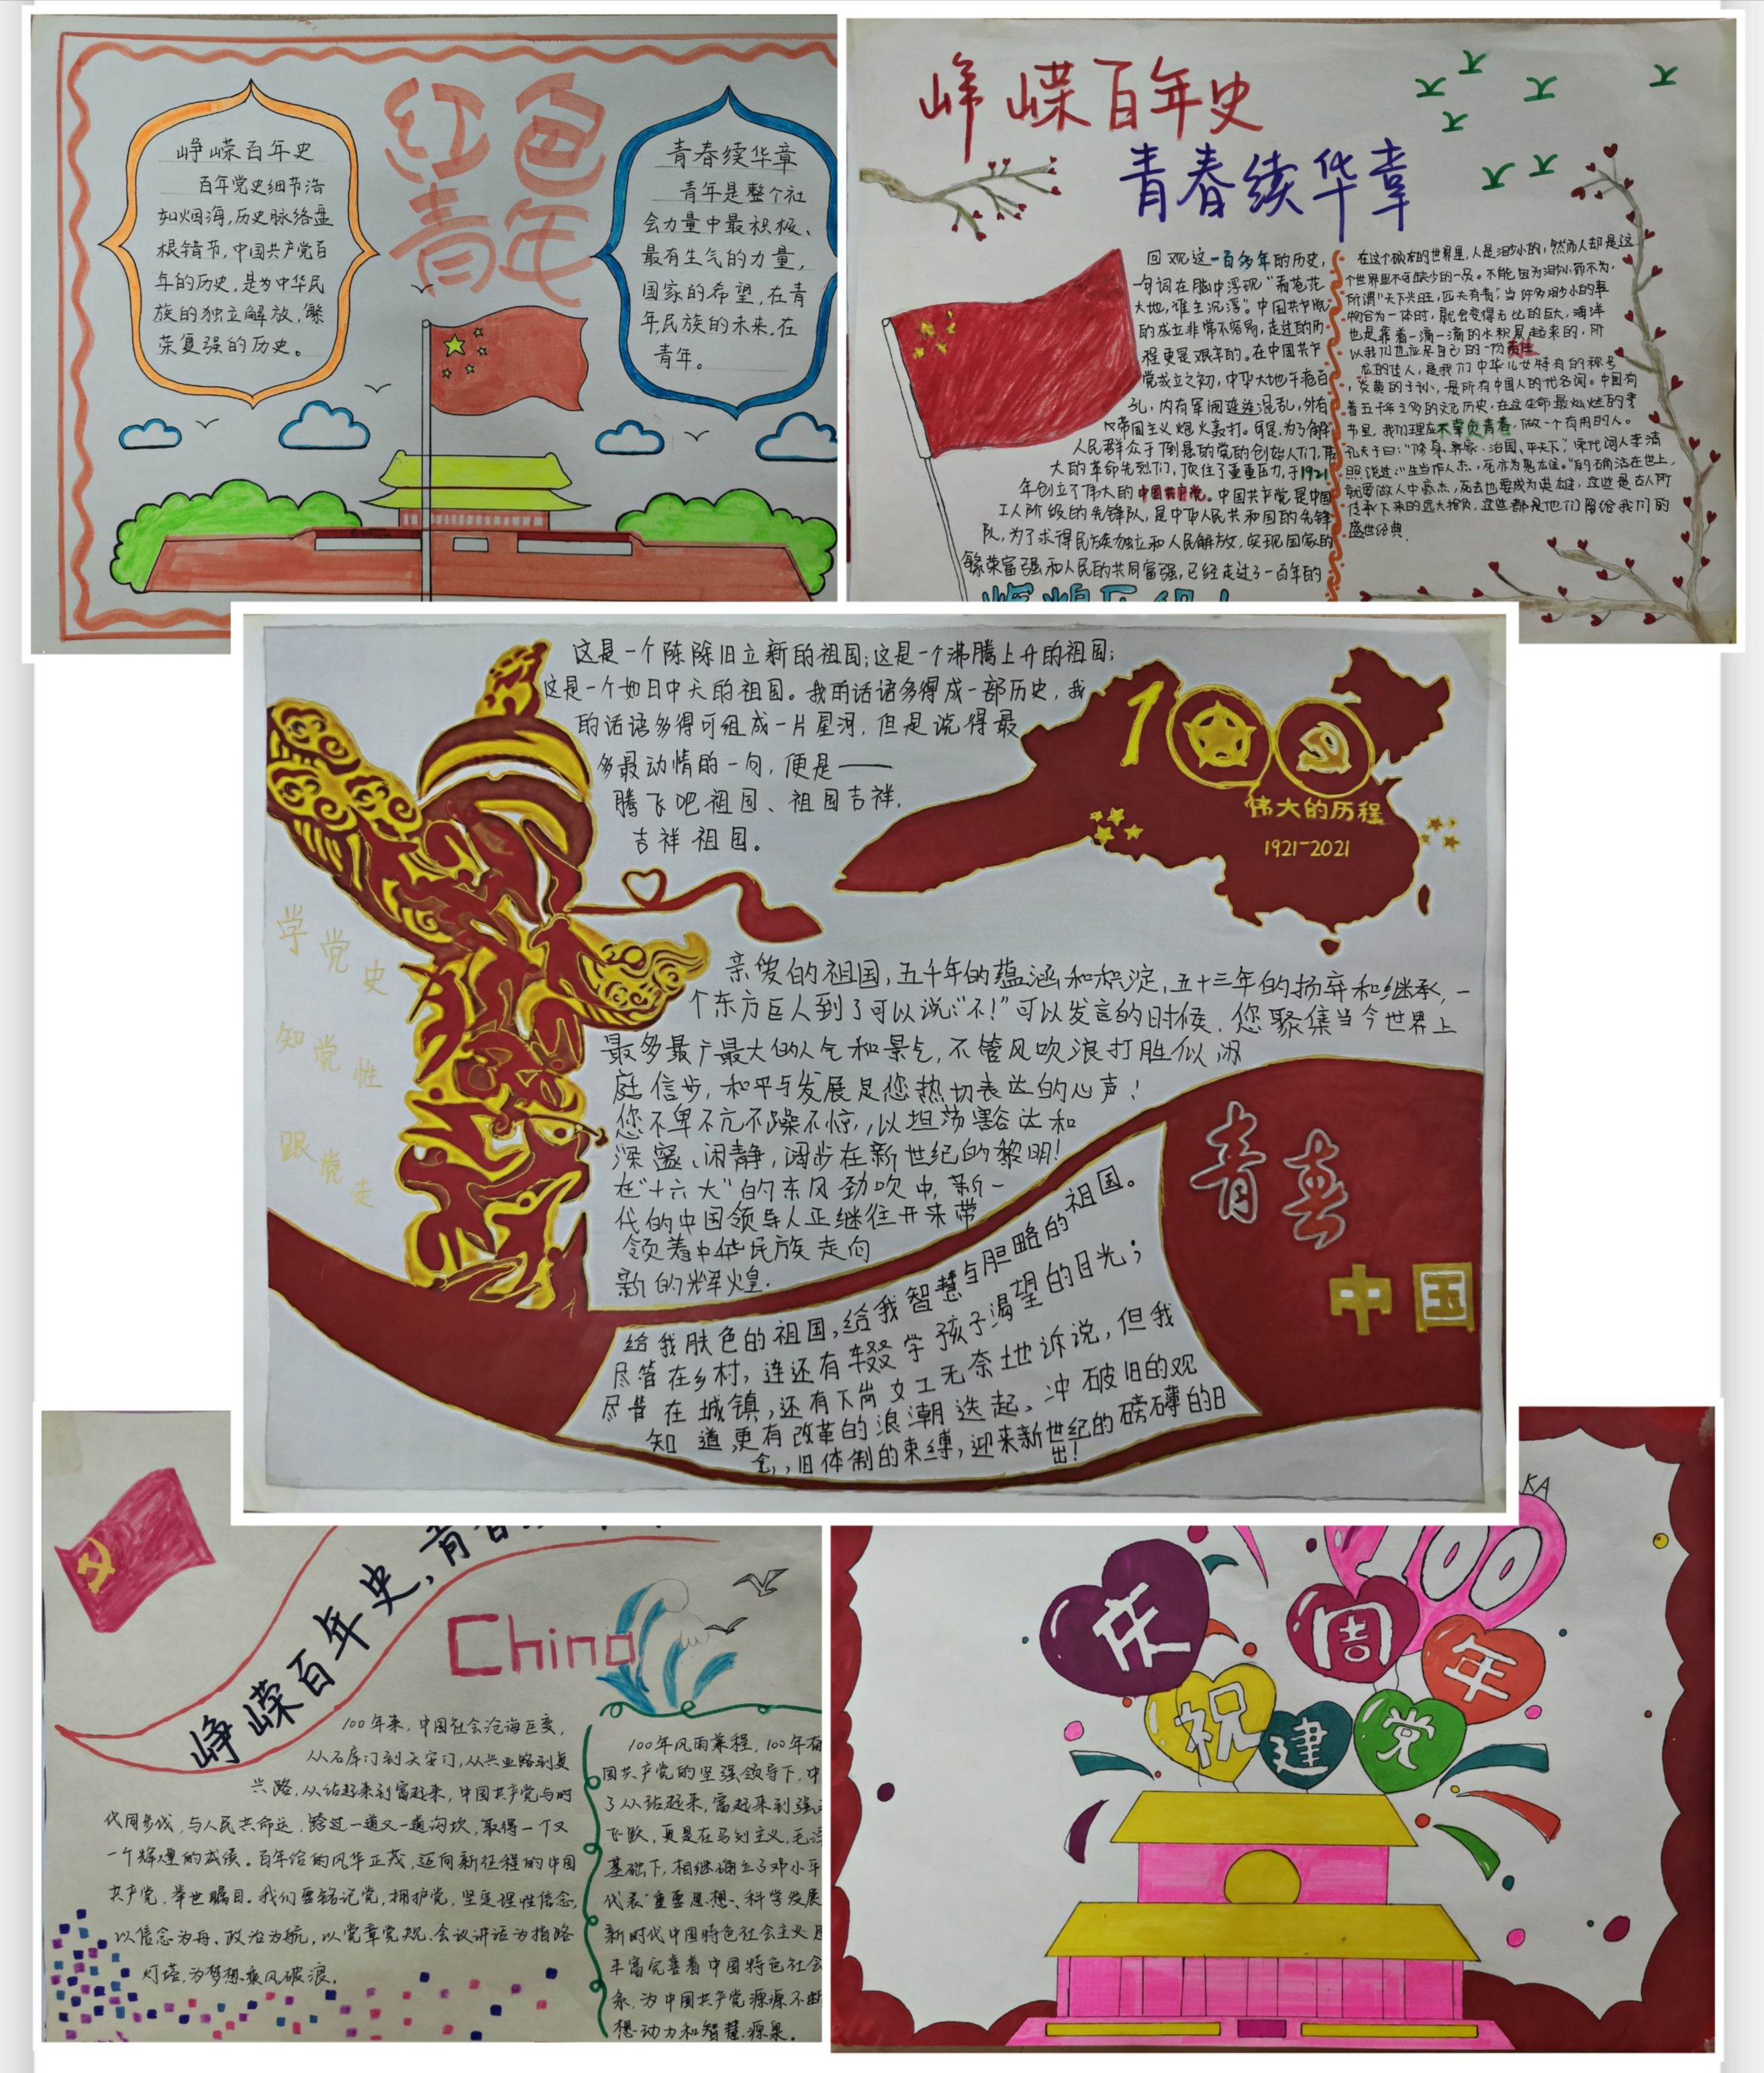 红色
青年
峥嵘百年史
百年党史细节浩
如烟海,历史脉络盘
根错节,中国共产党百
年的历史,是为中华民
族的独立解放,繁
荣复强的历史。
青春续华章
青年是整个社
会力量中最积极、
最有生气的力量,
国家的希望,在青
年民族的未来,在
青年。
峥嵘百年史
青春续华章
回观这一百多年的历史,
一句词在脑中浮现“看苍茫
大地,谁主沉浮”。中国共产党
的成立非常不容易,走过的历
程更是艰辛的。在中国共产
党成立之初,中华大地千疮百
孔,内有军阀连连混乱,外有
帝国主义炮火轰打。可是,为了解
人民群众于倒悬的党的创始人们,伟
大的革命先烈们,顶住了重重压力,于1921
年创立了伟大的中国共产党。中国共产党是中国
工人阶级的先锋队,是中华人民共和国的先锋
队,为了求得民族独立和人民解放,实现国家的
繁荣富强和人民的共同富强,已经走过了一百年的
在这个硕大的世界里,人是渺小的,然而人却是这
个世界里不可缺少的一员。不能因为渺小而不为,
所谓“天下兴旺,匹夫有责”当许多渺小的事
物合为一体时,就会变得无比的巨大,海洋
也是靠着一滴一滴的水积累起来的,所
以我们也应尽自己的一份责任
龙的传人,是我们中华儿女特有的称号
,炎黄的子孙,是所有中国人的代名词。中国有
着五千年之多的文化历史,在这生命最灿烂的季
节里,我们理应不辜负青春,做一个有用的人。
孔夫子曰:“修身、齐家、治国、平天下,”宋代词人李清
照说过:“生当作人杰,死亦为鬼雄。”的确活在世上,
就要做人中豪杰,死去也要成为英雄,这些是古人所
传承下来的远大抱负,这些都是他们留给我们的
盛世经典.
这是一个陈除旧立新的祖国;这是一个沸腾上升的祖国;
这是一个如日中天的祖国。我的话语多得成一部历史,我
的话语多得可组成一片星河,但是说得最
多最动情的一句,便是——
腾飞吧祖国、祖国吉祥,
吉祥祖国。
100
伟大的历程
1921-2021
学党史
知党性
跟党走
亲爱的祖国,五千年的蕴涵和积淀,五十三年的扬弃和继承,一
个东方巨人到了可以说:“不!”可以发言的时候,您聚集当今世界上
最多最广最大的人气和景气,不管风吹浪打胜似闲
庭信步,和平与发展是您热切表达的心声!
您不卑不亢不躁不惊,以坦荡豁达和
深邃、闲静,阔步在新世纪的黎明!
在“十六大”的东风劲吹中,新一
代的中国领导人正继往开来带
领着中华民族走向
新的辉煌.
给我肤色的祖国,给我智慧与胆略的祖国。
尽管在乡村,连还有辍学孩子渴望的目光;
尽管在城镇,还有下岗女工无奈地诉说,但我
知道,更有改革的浪潮迭起、冲破旧的观
念,旧体制的束缚,迎来新世纪的磅礴的日
出!
青春
中国
峥嵘百年史,青春
China
100年来,中国社会沧海巨变,
从石库门到天安门,从兴业路到复
兴路,从站起来到富起来,中国共产党与时
代同步伐,与人民共命运,跨过一道又一道沟坎,取得一个又
一个辉煌的成绩。百年恰的风华正茂,迈向新征程的中国
共产党,举世瞩目。我们要铭记党,拥护党,坚定理性信念,
以信念为舟、政治为航,以党章党规、会议讲话为指路
灯塔,为梦想乘风破浪.
100年风雨兼程,100年奋
国共产党的坚强领导下,中
了从站起来,富起来到强
飞跃,真是在马列主义,毛泽
基础下,相继确立了邓小平
代表”重要思想、科学发展
新时代中国特色社会主义
丰富完善着中国特色社会
系,为中国共产党源源不断
想动力和智慧源泉.
KA
100
庆 周 年
祝 建 党